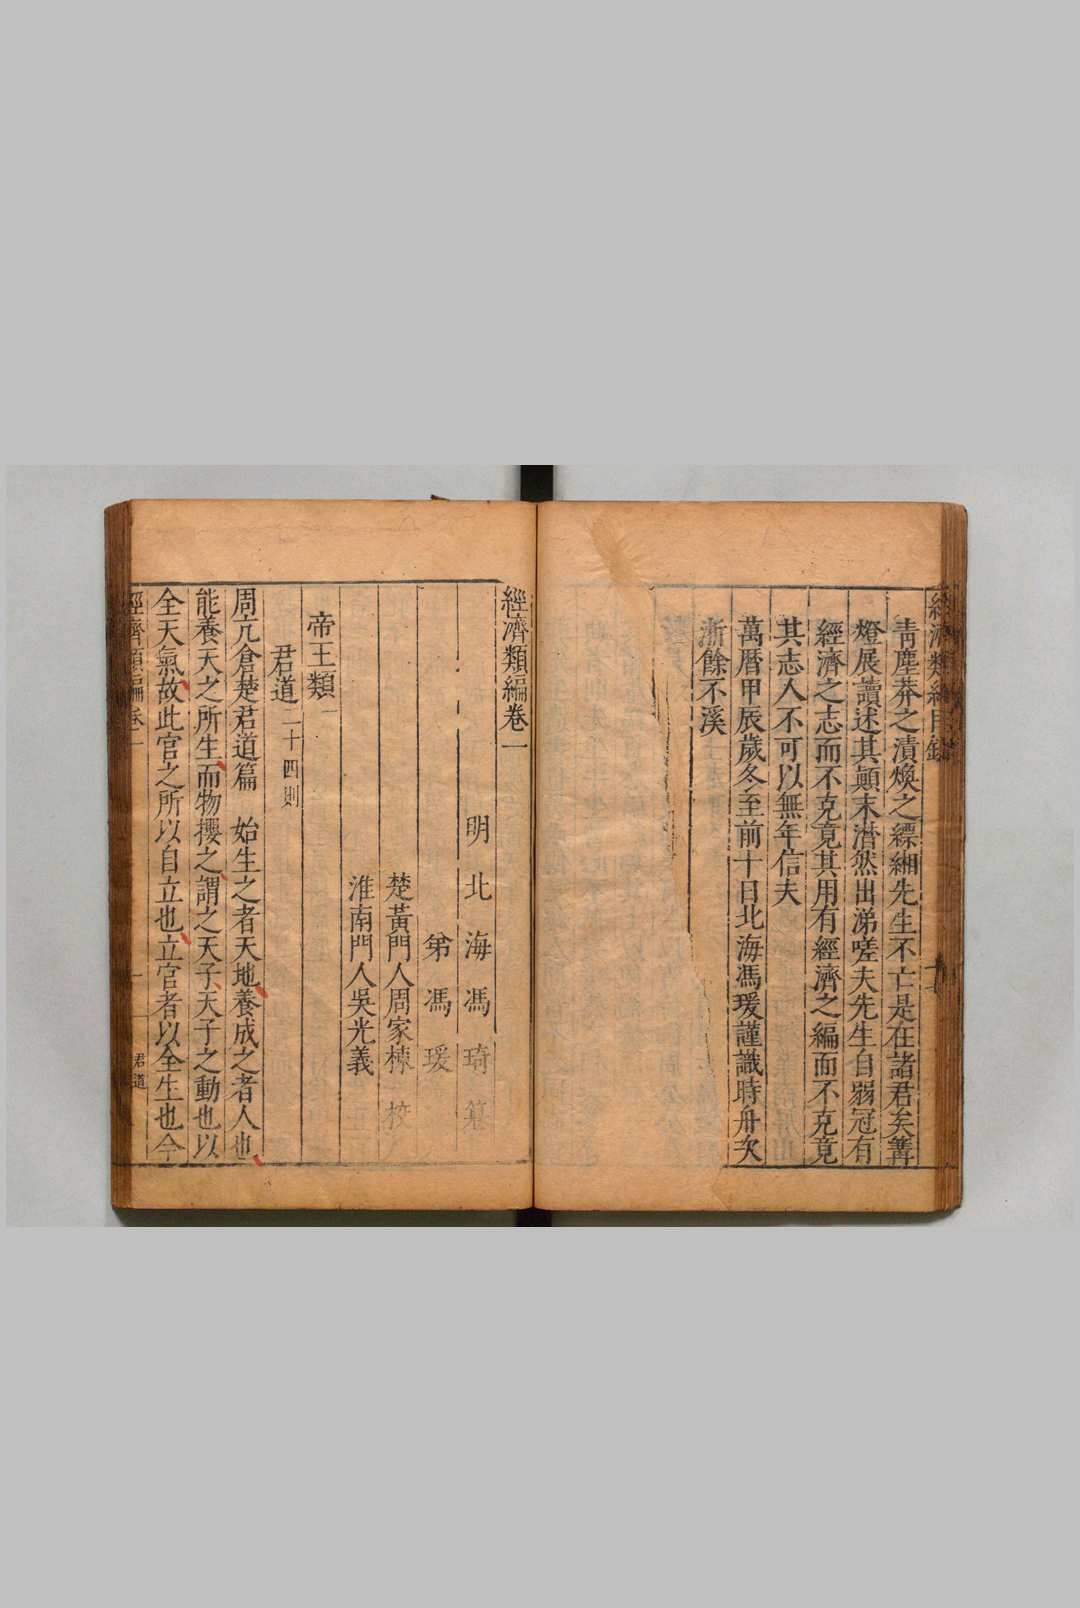 經濟類編目錄
青塵莽之漬煥之縹緗先生不亡是在諸君矣篝
燈展讀述其顛末潸然出涕嗟夫先生自弱冠有
經濟之志而不克竟其用有經濟之編而不克竟
其志人不可以無年信夫
萬曆甲辰歲冬至前十日北海馮瑗謹識時舟次
浙餘不溪
經濟類編卷一
明北海馮琦纂
弟馮瑗
楚黃門人周家棟校
淮南門人吳光義
帝王類一
君道二十四則
周亢倉楚君道篇 始生之者天地養成之者人也
能養天之所生而物攖之謂之天子天子之動也以
全天氣故此官之所以自立也立官者以全生也今
經濟類編卷一
一
君道